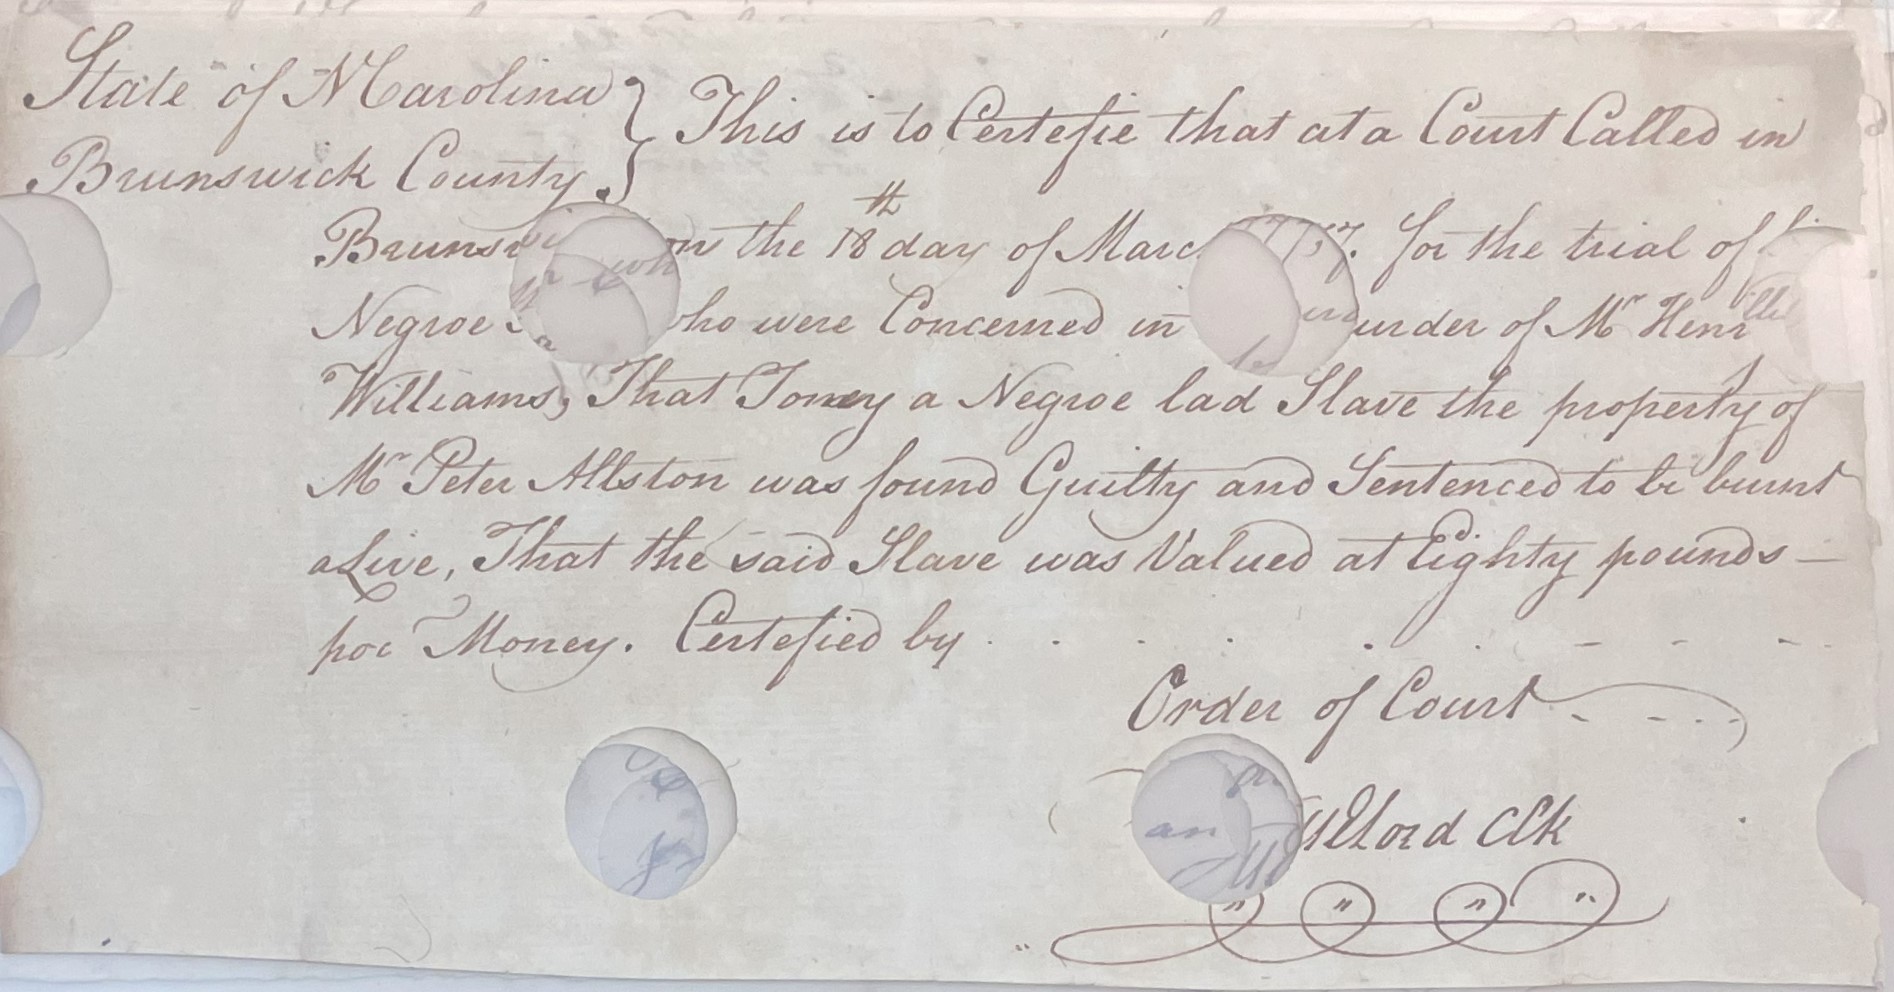 State of N Carolina
Brunswick County.
This is to Certefie that at a Court Called in
on the 18th day of for the trial of
Negroe who were Concerned in of Mr
Williams, That Toney a Negroe lad Slave the property of
Mr Peter Allston was found Guilty and Sentenced to be burnt
aLive, That the said Slave was Valued at Eighty pounds —
poc Money. Certefied by
Order of Court
Clk